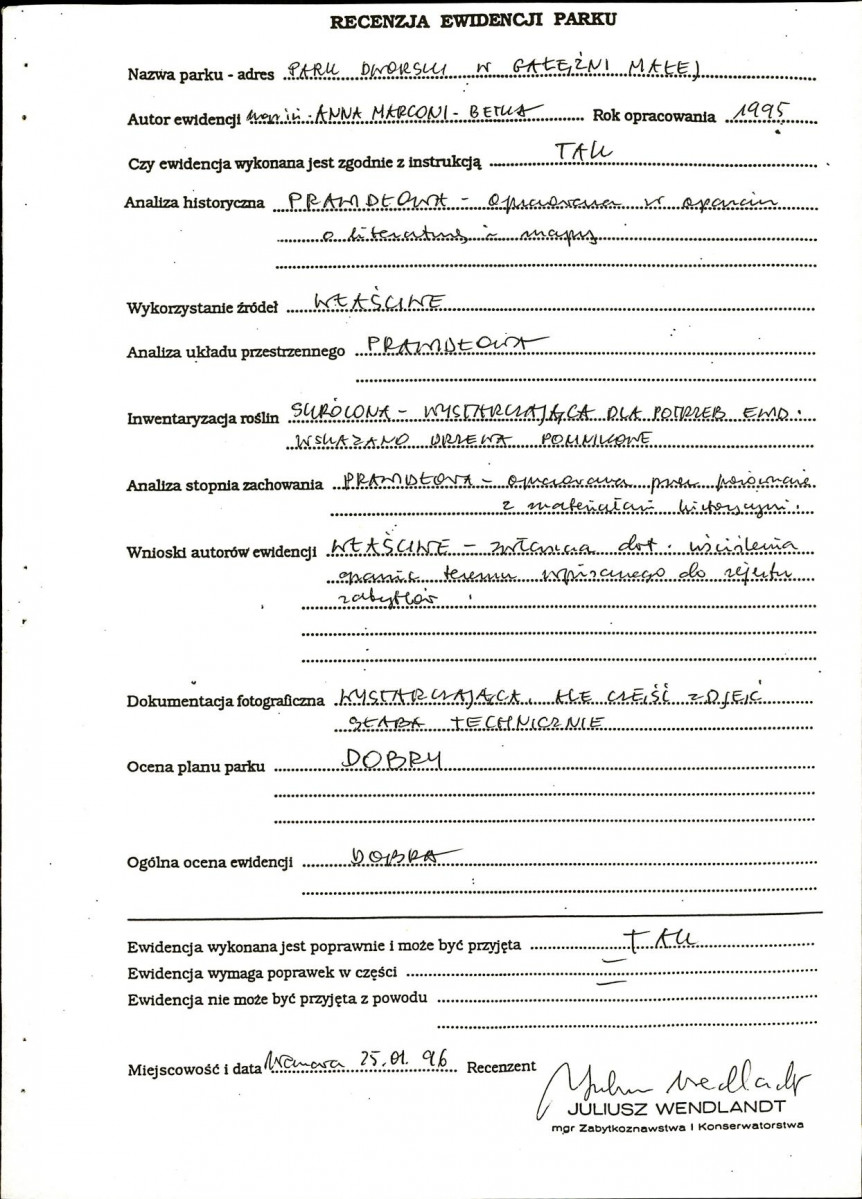 RECENZJA EWIDENCJI PARKU
Nazwa parku - adres PARK DWORSKI W GAŁĘŹNI MAŁEJ
Autor ewidencji ANNA MARCONI - BETKA Rok opracowania 1995
Czy ewidencja wykonana jest zgodnie z instrukcją TAK
Analiza historyczna PRAWIDŁOWA - opracowana w oparciu
o literaturę i mapy
Wykorzystanie źródeł WŁAŚCIWE
Analiza układu przestrzennego PRAWIDŁOWA
Inwentaryzacja roślin SKRÓCONA - WYSTARCZAJĄCA DLA POTRZEB EWID.
WSKAZANO DRZEWA POMNIKOWE
Analiza stopnia zachowania PRAWIDŁOWA - opracowana przez porównanie
z materiałami historycznymi.
Wnioski autorów ewidencji WŁAŚCIWE - zwłaszcza dot. uściślenia
granic terenu wpisanego do rejestru
zabytków.
Dokumentacja fotograficzna WYSTARCZAJĄCA, ALE CZĘŚĆ ZDJĘĆ
SŁABA TECHNICZNIE
Ocena planu parku DOBRY
Ogólna ocena ewidencji DOBRA
Ewidencja wykonana jest poprawnie i może być przyjęta TAK
Ewidencja wymaga poprawek w części —
Ewidencja nie może być przyjęta z powodu —
Miejscowość i data Warszawa 25.01.96 Recenzent
Juliusz Wendlandt
JULIUSZ WENDLANDT
mgr Zabytkoznawstwa i Konserwatorstwa